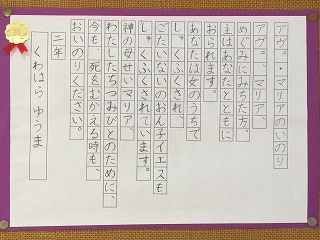 アヴェ・マリアのいのり
アヴェ、マリア、
めぐみにみちた方、
主はあなたとともに
おられます。
あなたは女のうちで
しゅくふくされ、
ごたいないのおん子イエスも
しゅくふくされています。
神の母せいマリア、
わたしたちつみびとのために、
今も、死をむかえる時も、
おいのりください。
二年
くわはら ゆうま